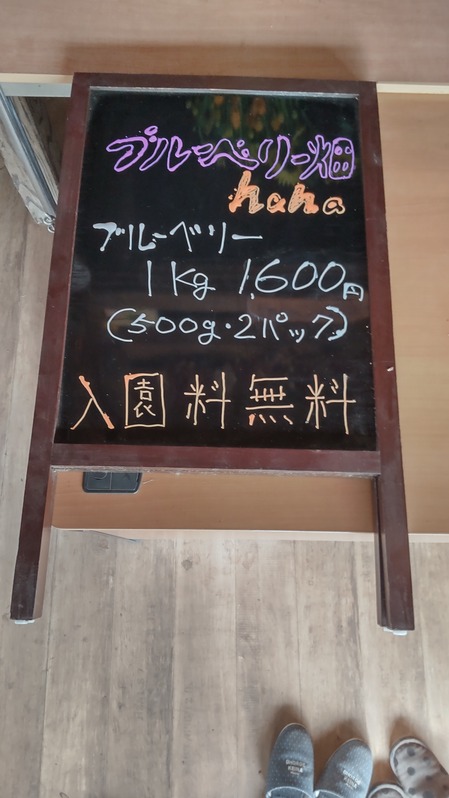 ブルーベリー畑
haha
ブルーベリー
1Kg 1,600円
(500g・2パック)
入園料無料